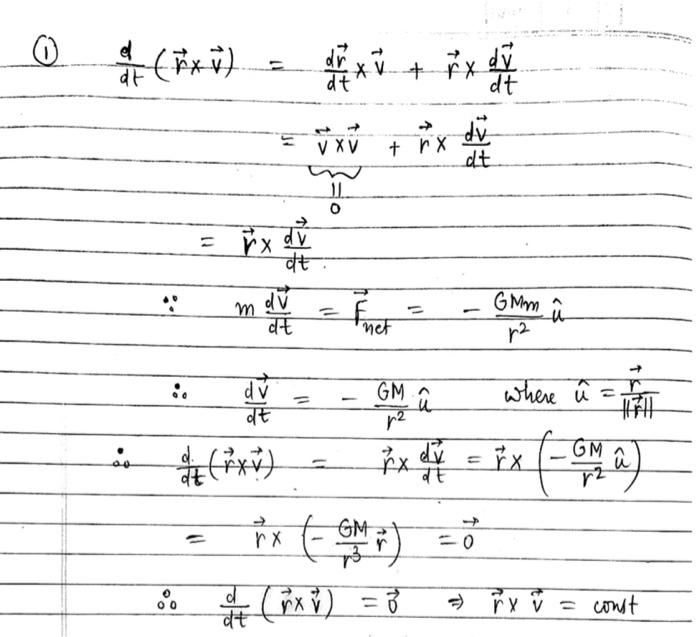 ① d/dt (r⃗ × v⃗) = dr⃗/dt × v⃗ + r⃗ × dv⃗/dt
= v⃗ × v⃗ + r⃗ × dv⃗/dt
||
0
= r⃗ × dv⃗/dt .
∵ m dv⃗/dt = F⃗net = - GMm/r² û
∴ dv⃗/dt = - GM/r² û where û = r⃗/||r⃗||
∴ d/dt (r⃗ × v⃗) = r⃗ × dv⃗/dt = r⃗ × (- GM/r² û)
= r⃗ × (- GM/r³ r⃗) = 0⃗
∴ d/dt (r⃗ × v⃗) = 0⃗ ⇒ r⃗ × v⃗ = const